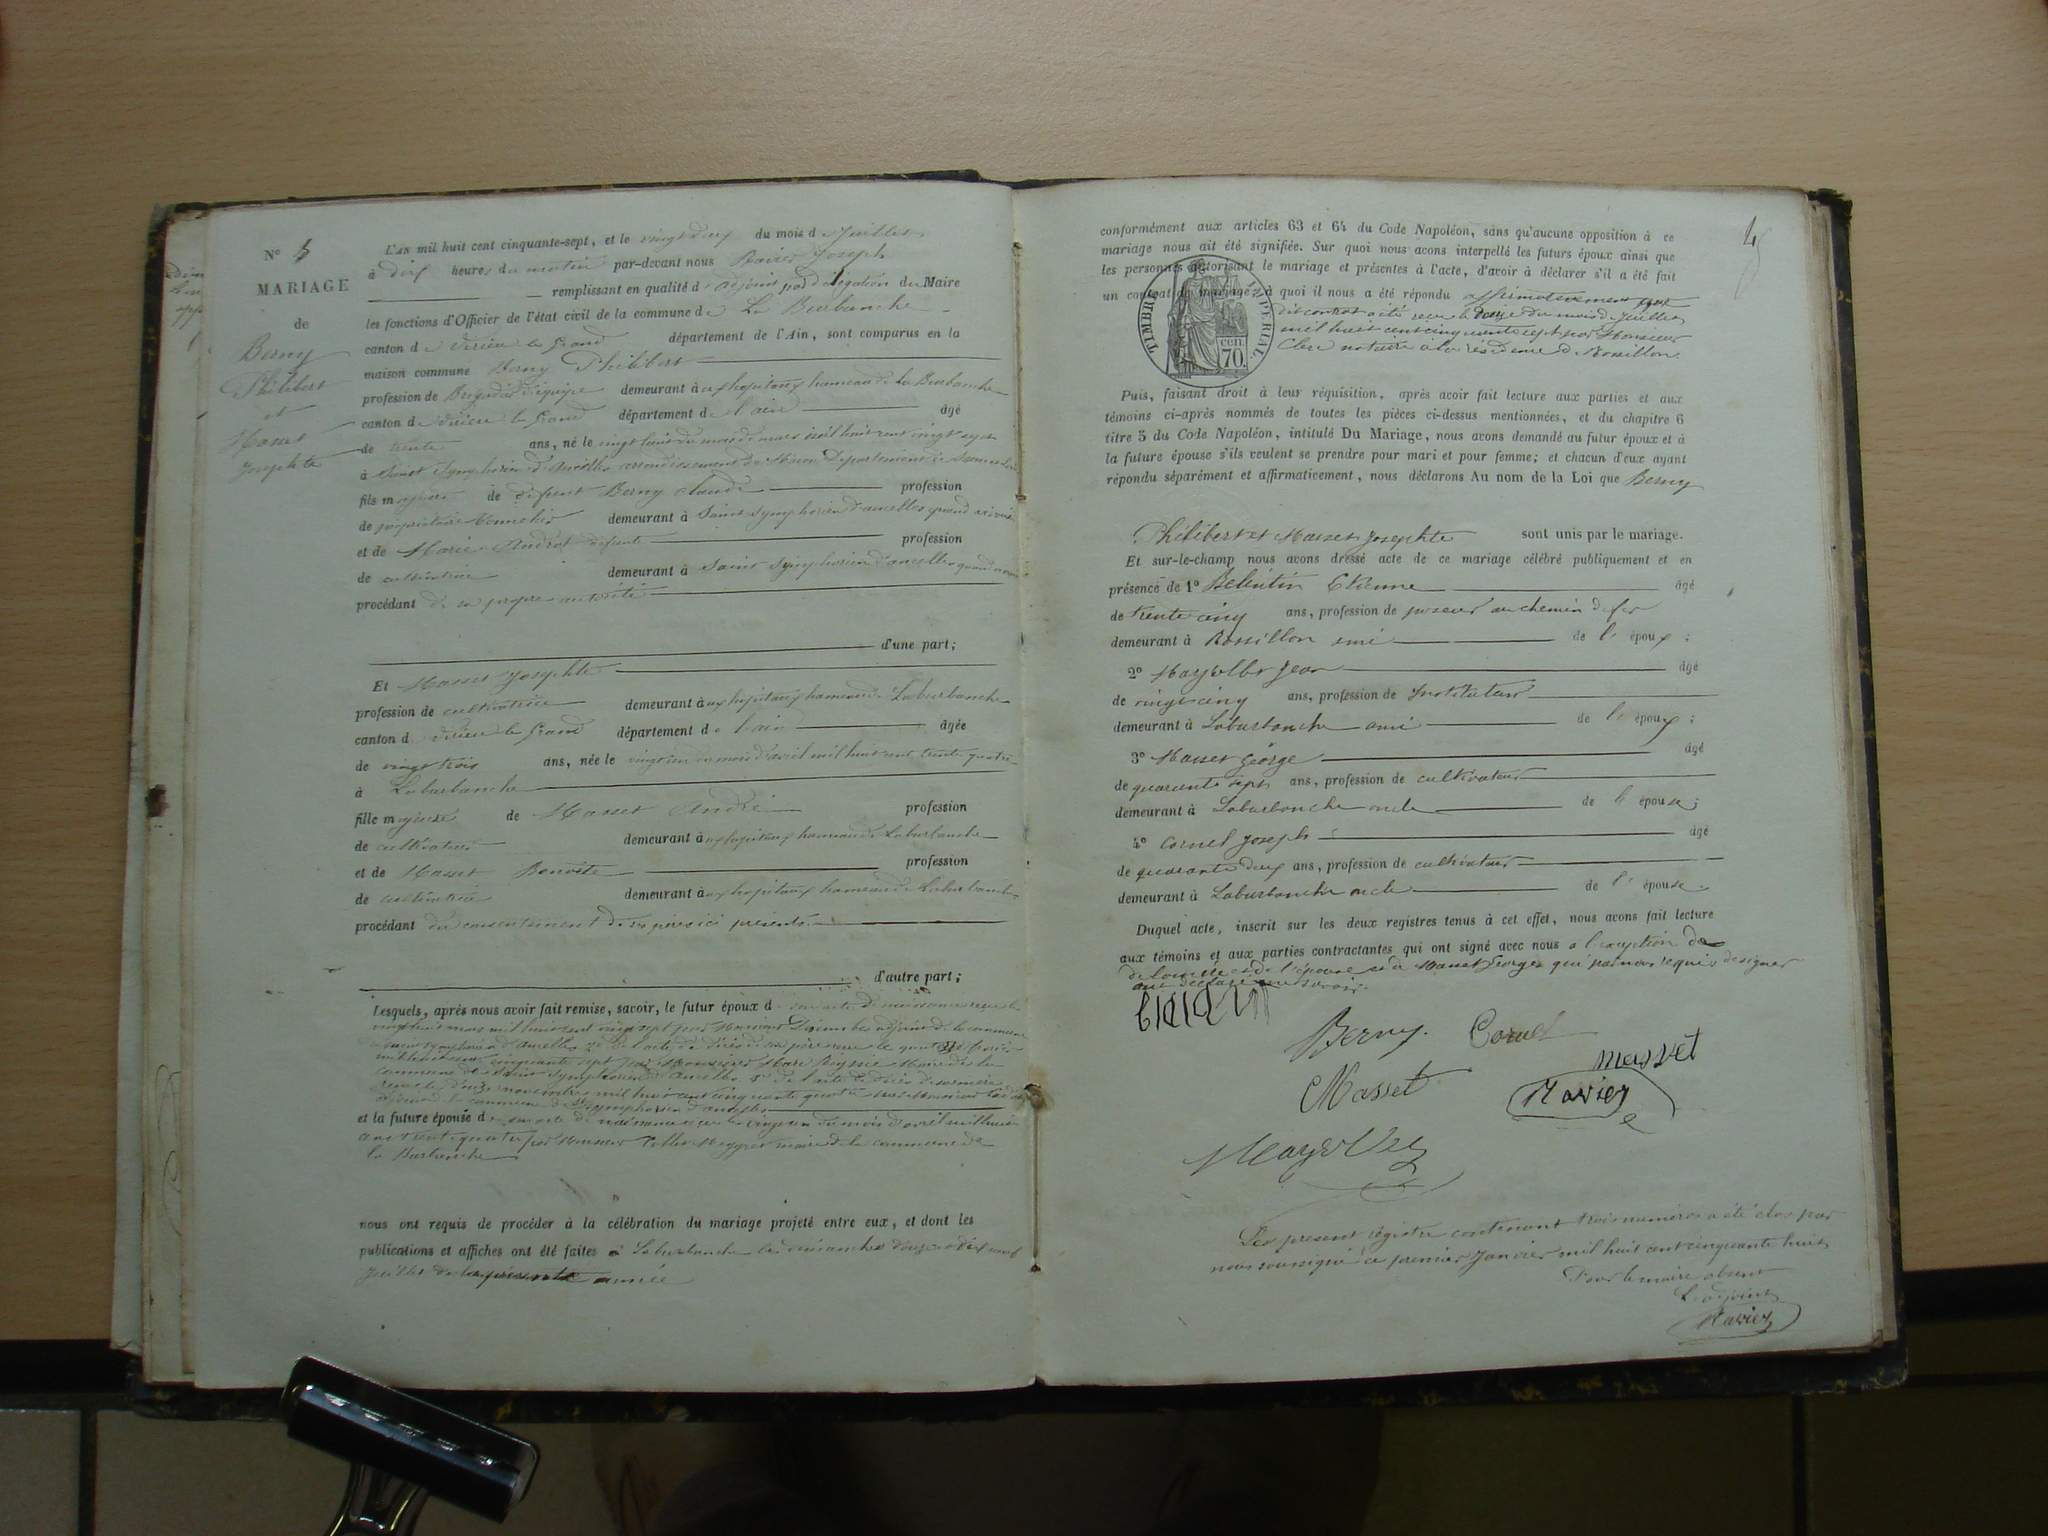 N° 3
MARIAGE
de
Berny
Philibert
et
Masset
Josephte
L'an mil huit cent cinquante-sept, et le vingt deux du mois de Juillet
à dix heures du matin par-devant nous Ravier Joseph
remplissant en qualité d'adjoint par délégation du Maire
les fonctions d'Officier de l'état civil de la commune de La Burbanche
canton de Virieu le Grand département de l'Ain, sont comparus en la
maison commune Berny Philibert
profession de Brigadier d'équipe demeurant à aux hopitaux hameau de La Burbanche
canton de Virieu le Grand département de l'ain âgé
de trente ans, né le vingt huit du mois de mars mil huit cent vingt sept
à Saint Symphorien d'Ancelles arrondissement de Macon Département de Saone et Loire
fils majeur de défunt Berny Claude profession
de propriétaire demeurant à Saint Symphorien d'ancelles quand vivait
et de Marie défunte profession
de cultivatrice demeurant à Saint Symphorien d'ancelles quand vivait
procédant de sa propre autorité
d'une part;
Et Masset Josephte
profession de cultivatrice demeurant à aux hopitaux hameau de Laburbanche
canton de Virieu le Grand département de l'ain âgée
de vingt trois ans, née le vingt un du mois d'avril mil huit cent trente quatre
à Laburbanche
fille majeure de Masset André profession
de cultivateur demeurant à aux hopitaux hameau de Laburbanche
et de Masset Benoite profession
de cultivatrice demeurant à aux hopitaux hameau de Laburbanche
procédant du consentement de ses père ici présents
d'autre part;
Lesquels, après nous avoir fait remise, savoir, le futur époux de son acte de naissance reçu le
vingt huit mars mil huit cent vingt sept par Monsieur adjoint de la commune
de Saint Symphorien d'ancelles 2° de l'acte de décès de son père reçu le
mil huit cent cinquante sept par Monsieur Marc Maire de la
commune de Saint Symphorien d'Ancelles 3° de l'acte de décès de sa mère
reçu le douze novembre mil huit cent cinquante quatre par Monsieur
de la commune de St Symphorien d'ancelles
et la future épouse de son acte de naissance reçu le vingt un du mois d'avril mil huit
cent trente quatre par Monsieur maire de la commune de
la Burbanche
nous ont requis de procéder à la célébration du mariage projeté entre eux, et dont les
publications et affiches ont été faites à Laburbanche les dimanches douze et dix neuf
Juillet de la présente année
conformément aux articles 63 et 64 du Code Napoléon, sans qu'aucune opposition à ce
mariage nous ait été signifiée. Sur quoi nous avons interpellé les futurs époux ainsi que
les personnes autorisant le mariage et présentes à l'acte, d'avoir à déclarer s'il a été fait
un contrat de mariage, à quoi il nous a été répondu affirmativement que
dit contrat a été reçu le douze du mois de Juillet
mil huit cent cinquante sept par Monsieur
Clerc notaire à la résidence de Rossillon
TIMBRE IMPÉRIAL
70 cen.
Puis, faisant droit à leur réquisition, après avoir fait lecture aux parties et aux
témoins ci-après nommés de toutes les pièces ci-dessus mentionnées, et du chapitre 6
titre 5 du Code Napoléon, intitulé Du Mariage, nous avons demandé au futur époux et à
la future épouse s'ils veulent se prendre pour mari et pour femme; et chacun d'eux ayant
répondu séparément et affirmativement, nous déclarons Au nom de la Loi que Berny
Philibert et Masset Josephte sont unis par le mariage.
Et sur-le-champ nous avons dressé acte de ce mariage célébré publiquement et en
présence de 1° Belintin Etienne âgé
de trente cinq ans, profession de poseur au chemin de fer
demeurant à Rossillon ami de l'époux;
2° Jean âgé
de vingt cinq ans, profession de Instituteur
demeurant à Laburbanche ami de l'époux;
3° Masset George âgé
de quarante sept ans, profession de cultivateur
demeurant à Laburbanche oncle de l'épouse;
4° Cornet Joseph âgé
de quarante deux ans, profession de cultivateur
demeurant à Laburbanche oncle de l'épouse.
Duquel acte, inscrit sur les deux registres tenus à cet effet, nous avons fait lecture
aux témoins et aux parties contractantes qui ont signé avec nous à l'exception de
de la mère et de l'épouse et de Masset Georges qui par nous requis de signer
ont déclaré ne savoir.
Berny. Cornet
Masset
Masset
Ravier
Le présent régistre contenant trois numéros a été clos par
nous soussigné ce premier Janvier mil huit cent cinquante huit
Pour le maire absent
L'adjoint
Ravier